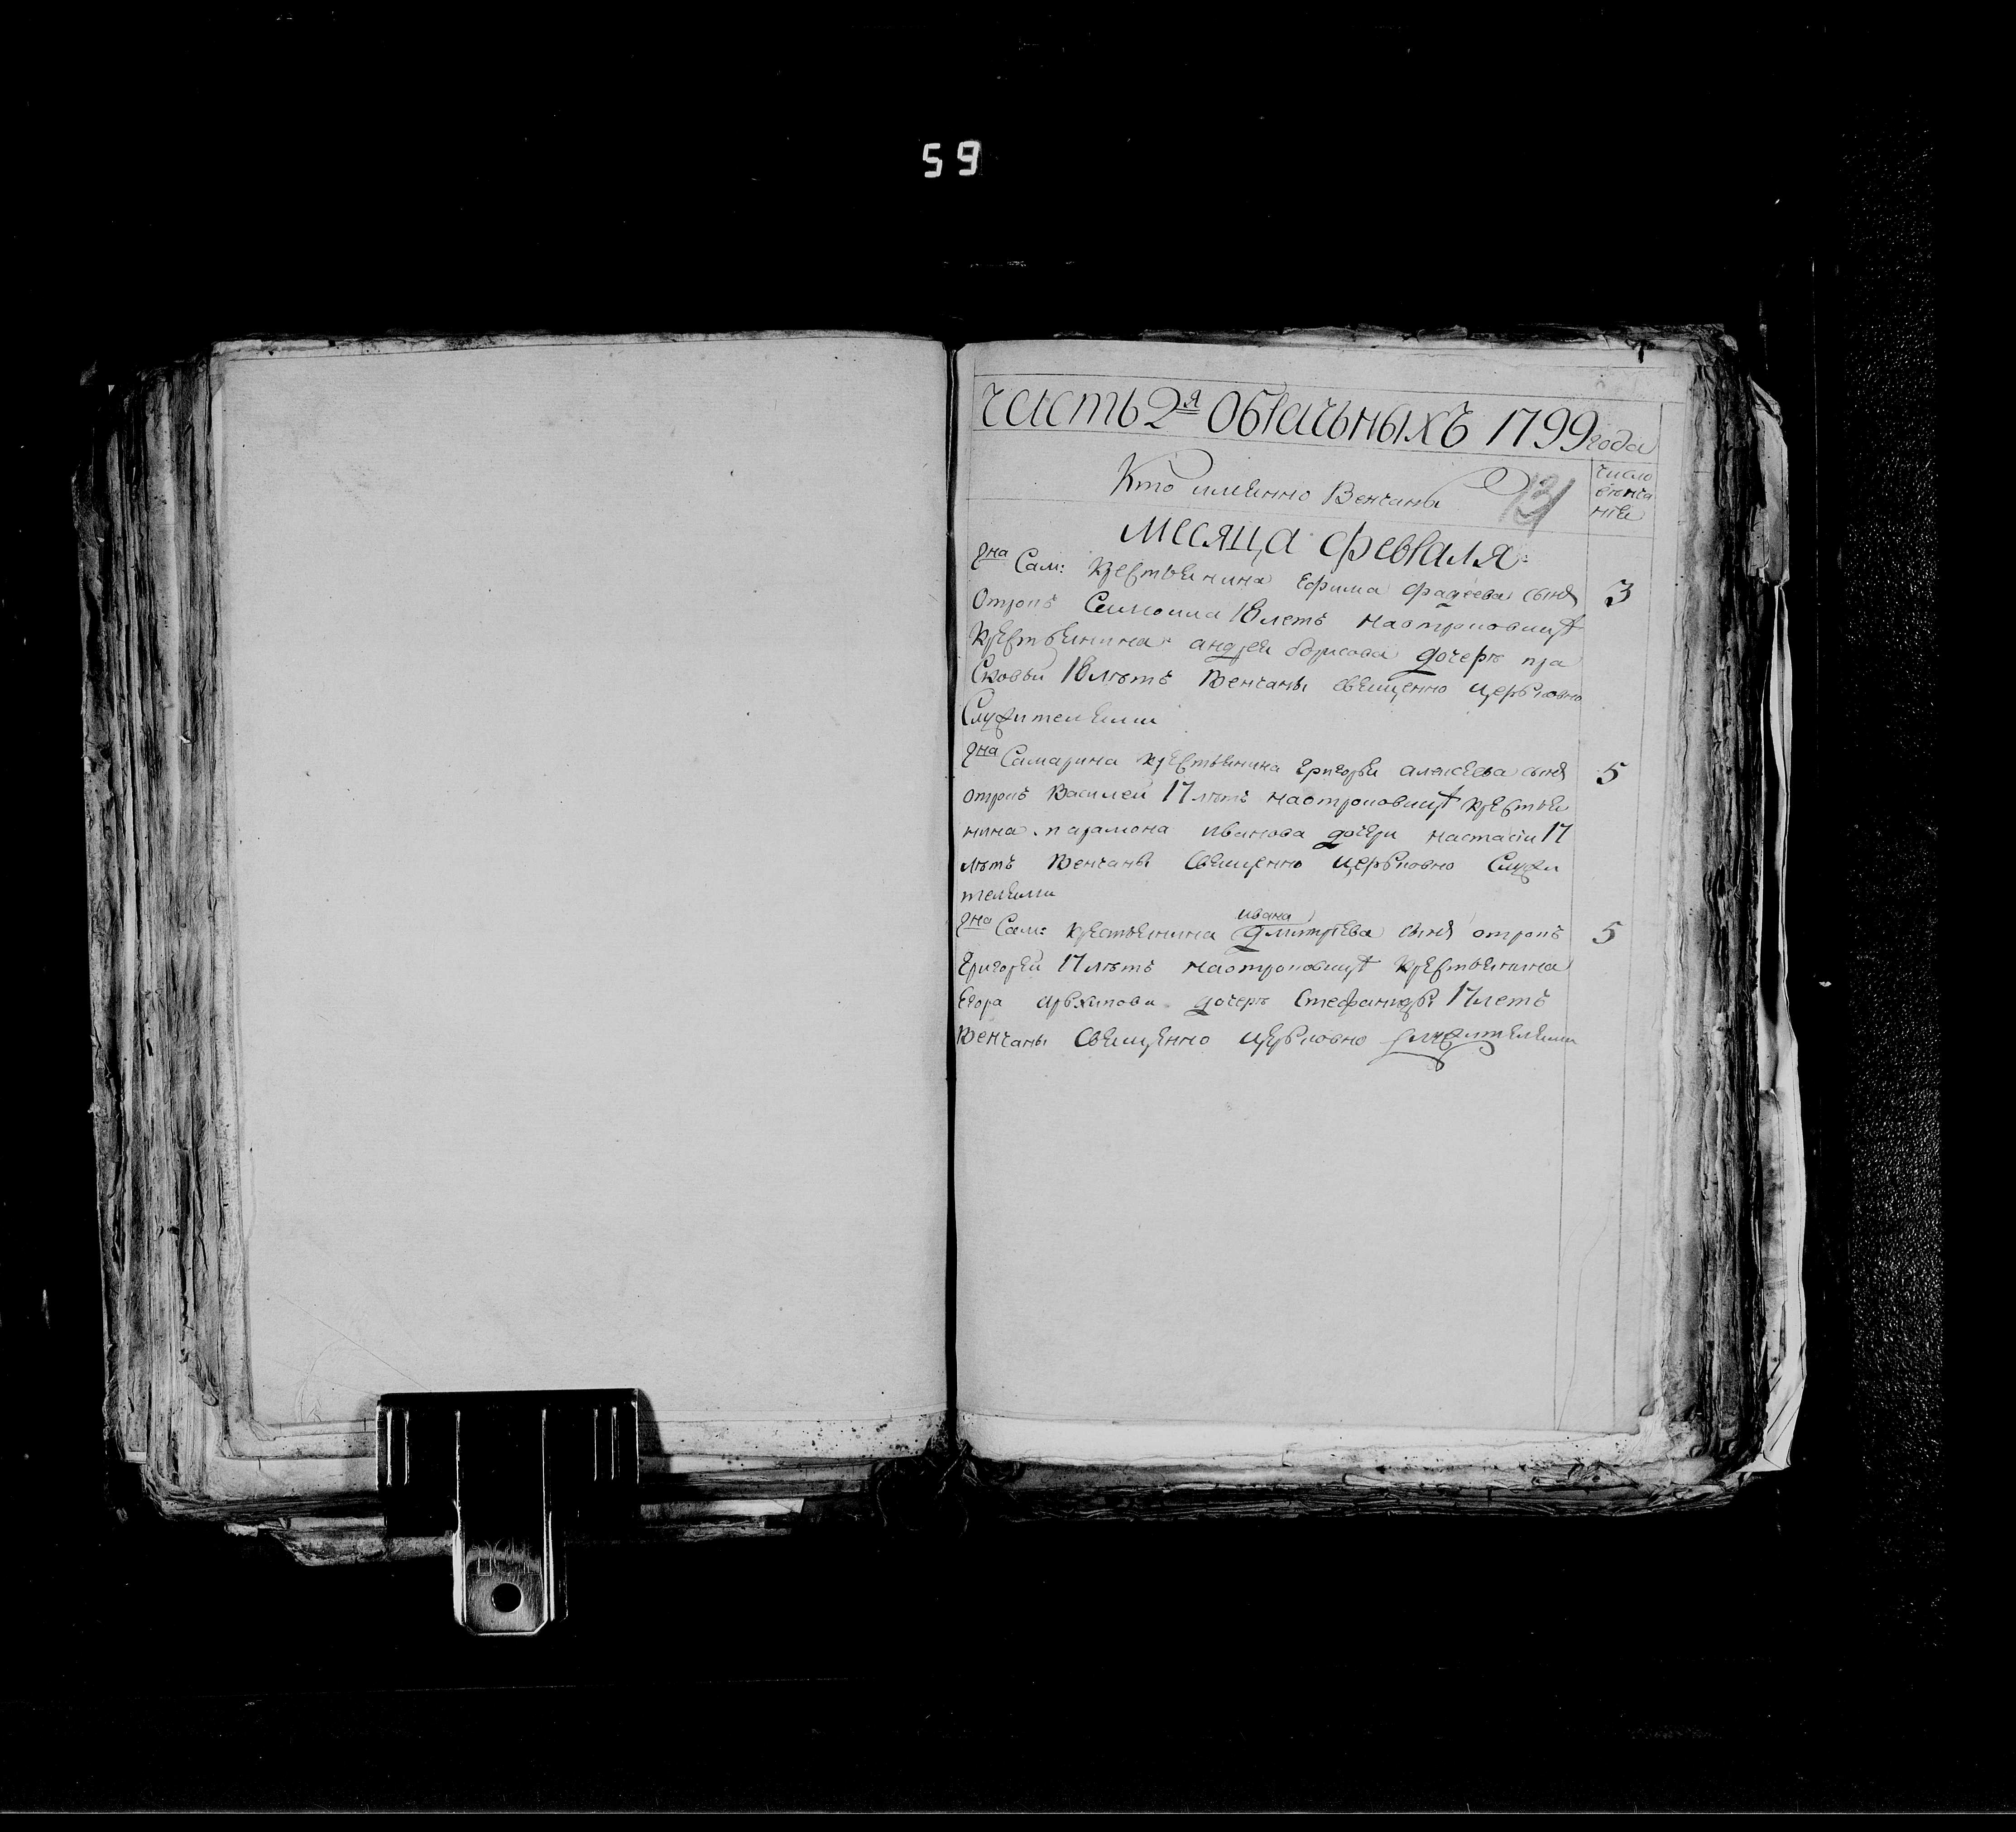 59
часть 2я обрачьныхъ 1799 года
Кто именно Венчаны
131
число
венча
ния
месяца февраля:
Гна Сам: крестьянина ефима фадеева сынъ
Отрокъ Самоила 18 летъ на отроковицѣ
крестьянина андрея борисова дочерѣ пра
сковьи 18 лѣтъ венчаны священно церковно
служителями
3
Гна Самарина крестьянина григорья алѣксеева сынъ
отрокъ Василей 17 лѣтъ на отроковицѣ крестья
нина парамона иванова дочери настасіи 17
лѣтъ венчаны священно церковно служи
телями
5
ивана
Гна Сам: крестьянина дмитрѣева сынъ отрокъ
григорей 17 лѣтъ на отроковицѣ крестьянина
егора архипова дочерѣ 17 летъ
венчаны священно церковно служителями
5